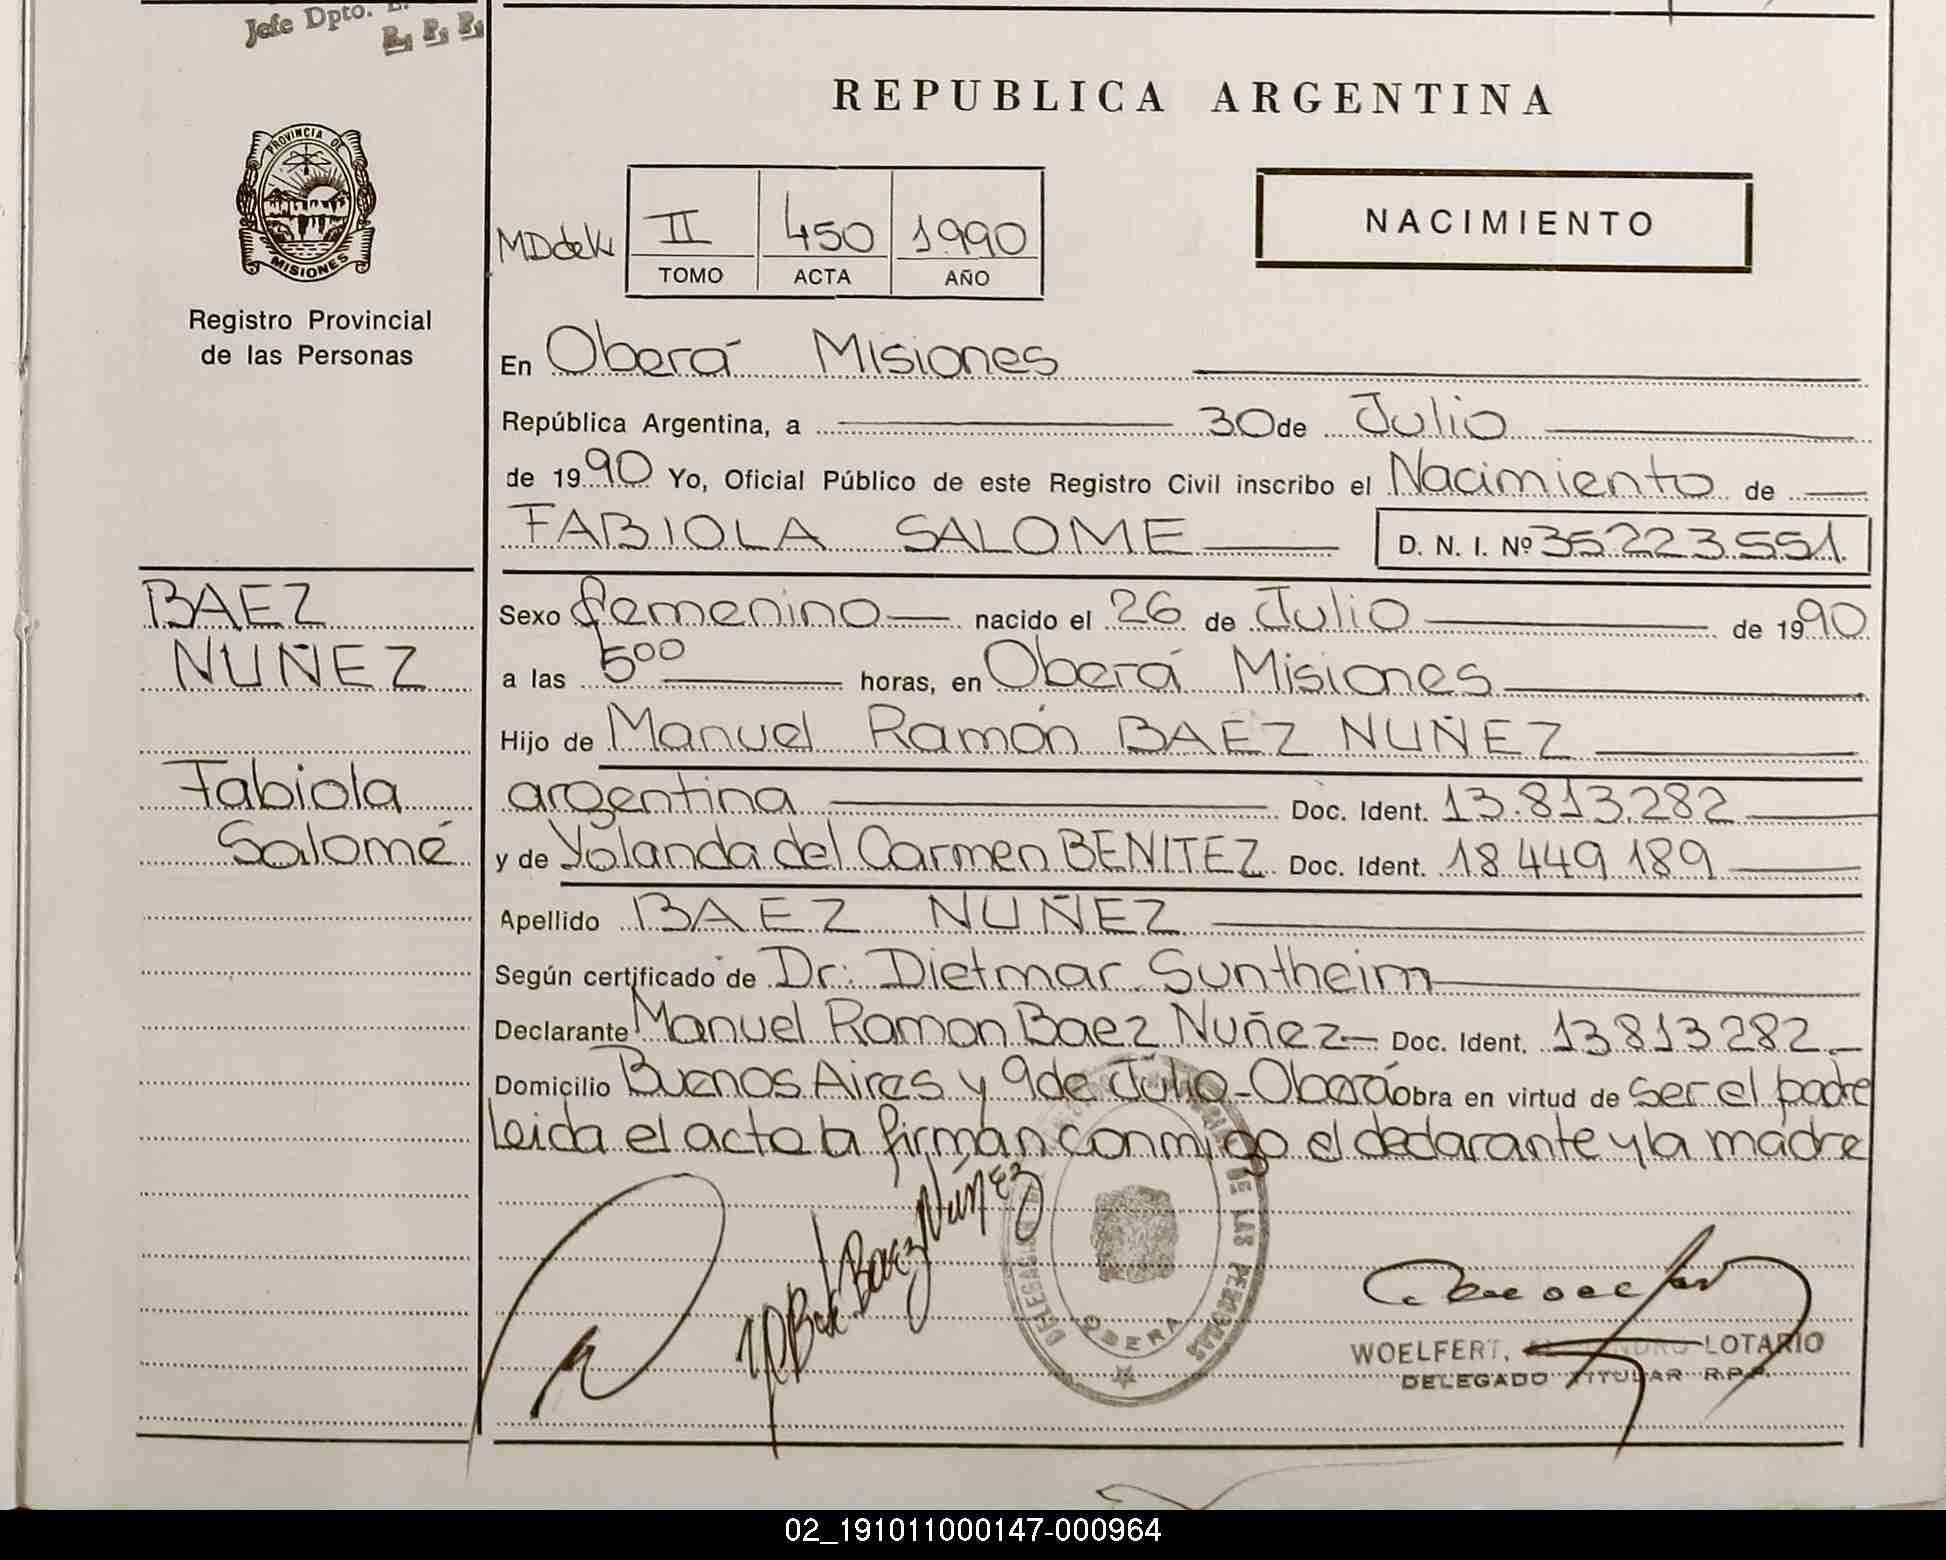 Jefe Dpto.
R. P. P.
PROVINCIA DE
MISIONES
Registro Provincial
de las Personas
REPUBLICA ARGENTINA
NACIMIENTO
II 450 1990
TOMO ACTA AÑO
En Oberá Misiones
República Argentina, a 30 de Julio
de 1990 Yo, Oficial Público de este Registro Civil inscribo el Nacimiento de
FABIOLA SALOME D. N. I. Nº 35223.551.
BAEZ
NUÑEZ
Fabiola
Salomé
Sexo femenino nacido el 26 de Julio de 1990
a las 500 horas, en Oberá Misiones
Hijo de Manuel Ramón BAEZ NUÑEZ
argentina Doc. Ident. 13.813.282
y de Yolanda del Carmen BENITEZ Doc. Ident. 18.449.189
Apellido BAEZ NUÑEZ
Según certificado de Dr: Dietmar Suntheim
Declarante Manuel Ramon Baez Nuñez Doc. Ident. 13.813.282
Domicilio Buenos Aires y 9 de Julio - Oberá obra en virtud de ser el padre
leida el acta la firman conmigo el declarante y la madre
Baez Núñez
DELEGACION DE LAS PERSONAS
OBERA
WOELFERT, LOTARIO
DELEGADO TITULAR R.P.P.
02_191011000147-000964